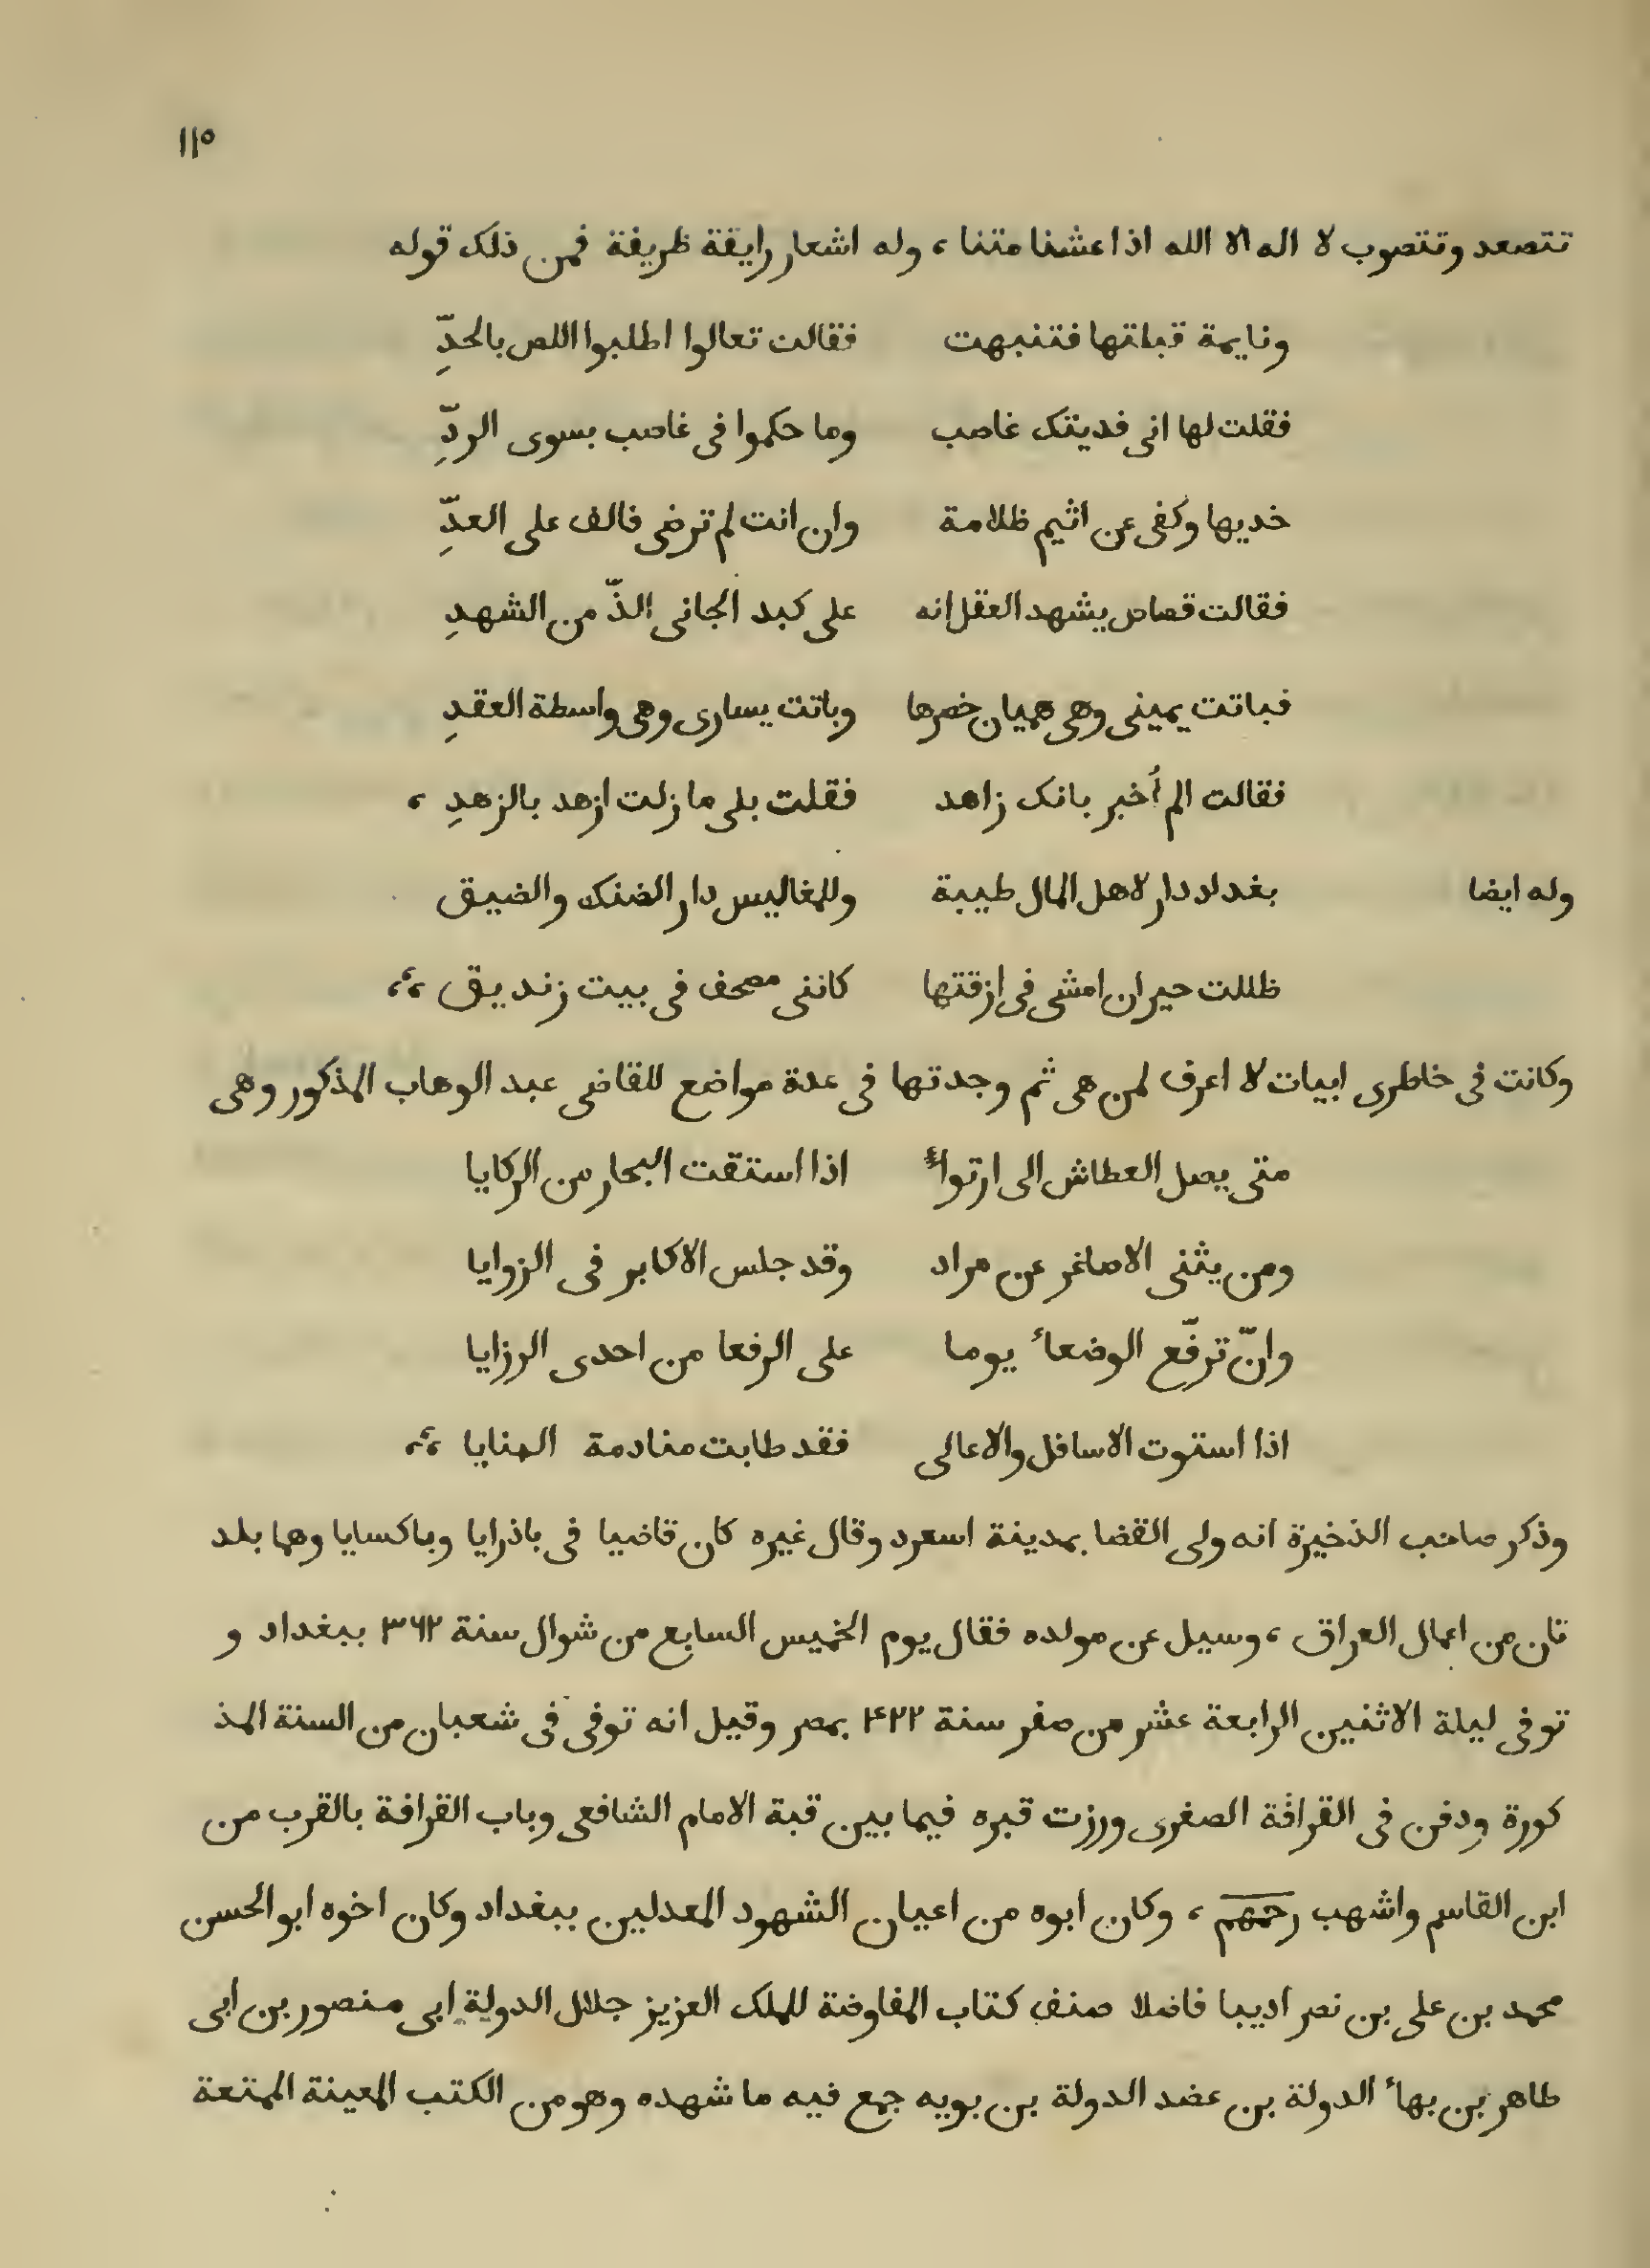 ١١٥
تتصعد وتتصوب لا اله الا الله اذا عشنا متنا ، وله اشعار رايقة ظريفة فمن ذلك قوله
ونايمة قبلتها فتنبهت فقالت تعالوا اطلبوا اللص بالحدِّ
فقلت لها انى فديتك غاصب وما حكموا فى غاصب بسوى الردِّ
خديها وكفى عن اثيم ظلامة وان انت لم ترضى فالف على العدِّ
فقالت قصاص يشهد العقل انه على كبد الجانى الذّ من الشهدِ
فباتت يمينى وهى هميان خصرها وباتت يسارى وهى واسطة العقدِ
فقالت الم أُخبر بانك زاهد فقلت بلى ما زلت ازهد بالزهدِ ،
وله ايضا بغداد دار لاهل المال طيبة وللمغاليس دار الضنك والضيق
ظللت حيران امشى فى ازقتها كاننى مصحف فى بيت زنديق ،،
وكانت فى خاطرى ابيات لا اعرف لمن هى ثم وجدتها فى عدة مواضع للقاضى عبد الوهاب المذكور وهى
متى يصل العطاش الى ارتواءٍ اذا استقت البحار من الركايا
ومن يثنى الاصاغر عن مراد وقد جلس الاكابر فى الزوايا
وانّ ترفّع الوضعاء يوما على الرفعا من احدى الرزايا
اذا استوت الاسافل والاعالى فقد طابت منادمة المنايا ،،
وذكر صاحب الذخيرة انه ولى القضا بمدينة اسعرد وقال غيره كان قاضيا فى باذرايا وباكسايا وهما بلد
تان من اعمال العراق ، وسيل عن مولده فقال يوم الخميس السابع من شوال سنة ٣٦٢ ببغداد و
توفى ليلة الاثنين الرابعة عشر من صفر سنة ٤٢٢ بمصر وقيل انه توفى فى شعبان من السنة المذ
كورة ودفن فى القرافة الصغرى وزرت قبره فيما بين قبة الامام الشافعى وباب القرافة بالقرب من
ابن القاسم واشهب رحمهم ، وكان ابوه من اعيان الشهود المعدلين ببغداد وكان اخوه ابو الحسن
محمد بن على بن نصر اديبا فاضلا صنف كتاب المفاوضة للملك العزيز جلال الدولة ابى منصور بن ابى
طاهر بن بهاء الدولة بن عضد الدولة بن بويه جمع فيه ما شهده وهو من الكتب المعينة الممتعة